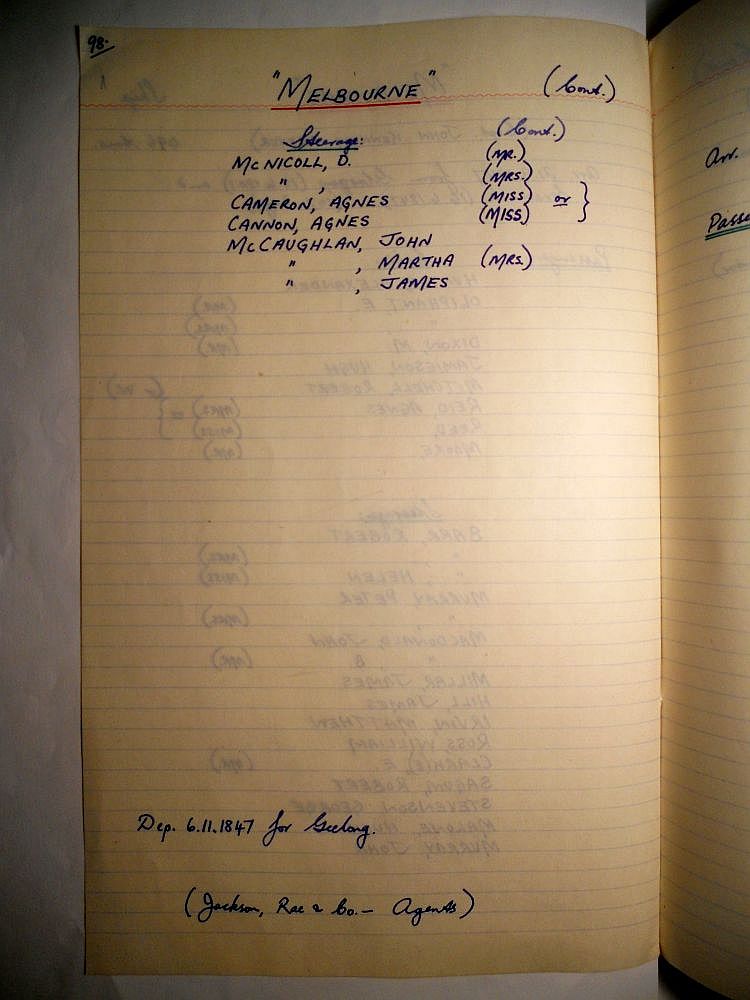 98.
"MELBOURNE" (Cont.)
Steerage: (Cont.)
McNICOLL, D. (MR.)
" , (MRS.)
CAMERON, AGNES (MISS) or }
CANNON, AGNES (MISS)
McCAUGHLAN, JOHN
" , MARTHA (MRS.)
" , JAMES
Dep. 6.11.1847 for Geelong.
(Jackson, Rae & Co. — Agents)
Arr.